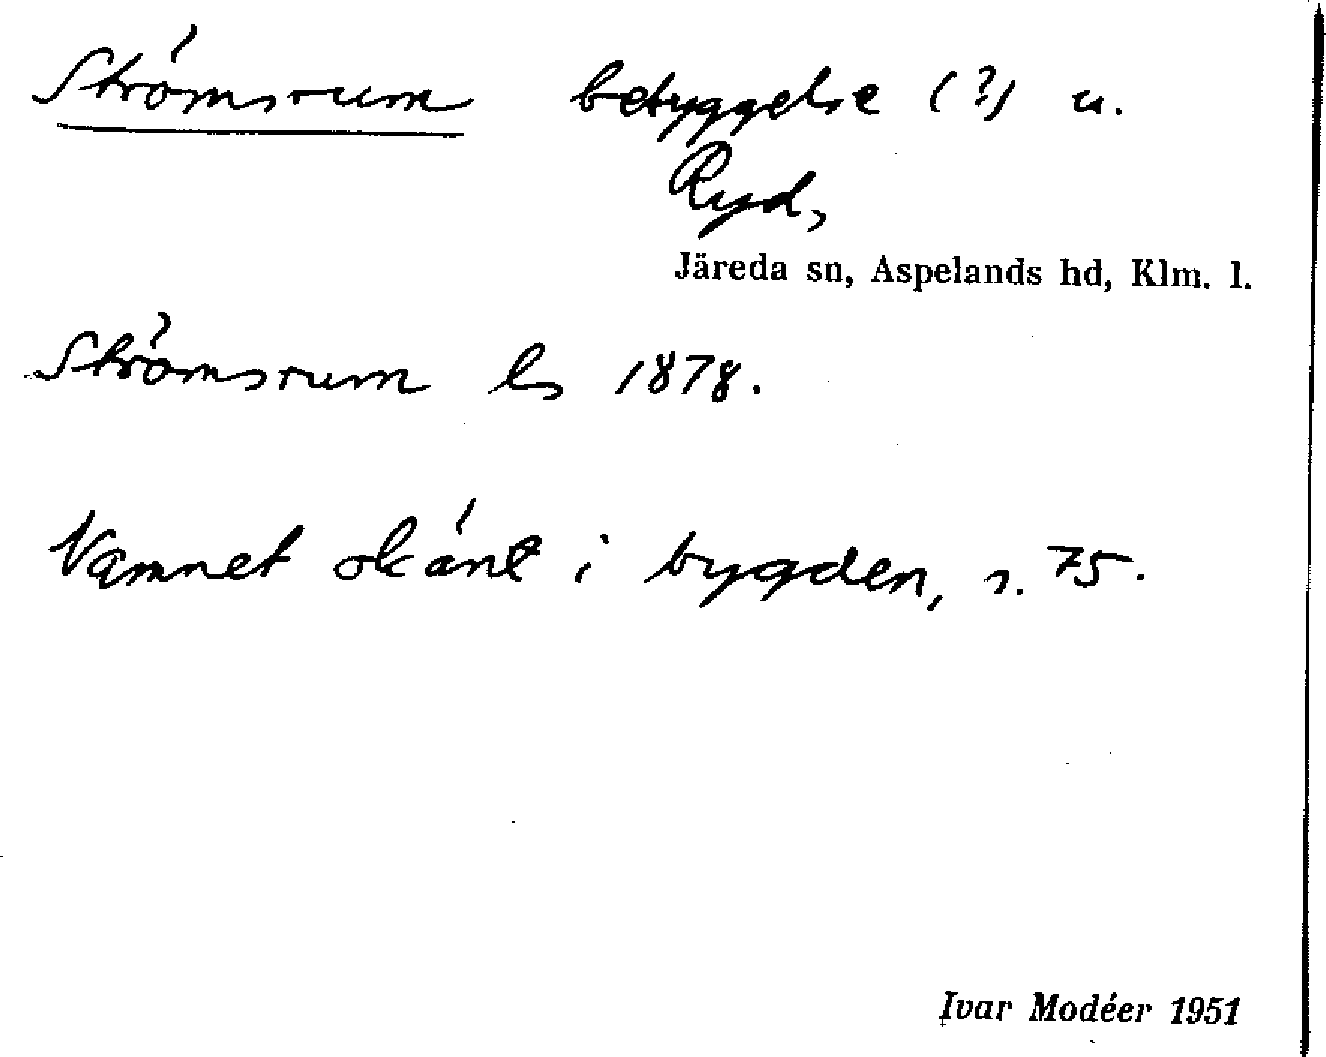 Strömsrum bebyggelse (?) u.
Ryd,
Järeda sn, Aspelands hd, Klm. l.
Strömsrum ls 1878.
Namnet okänt i bygden, s. 75.
Ivar Modéer 1951